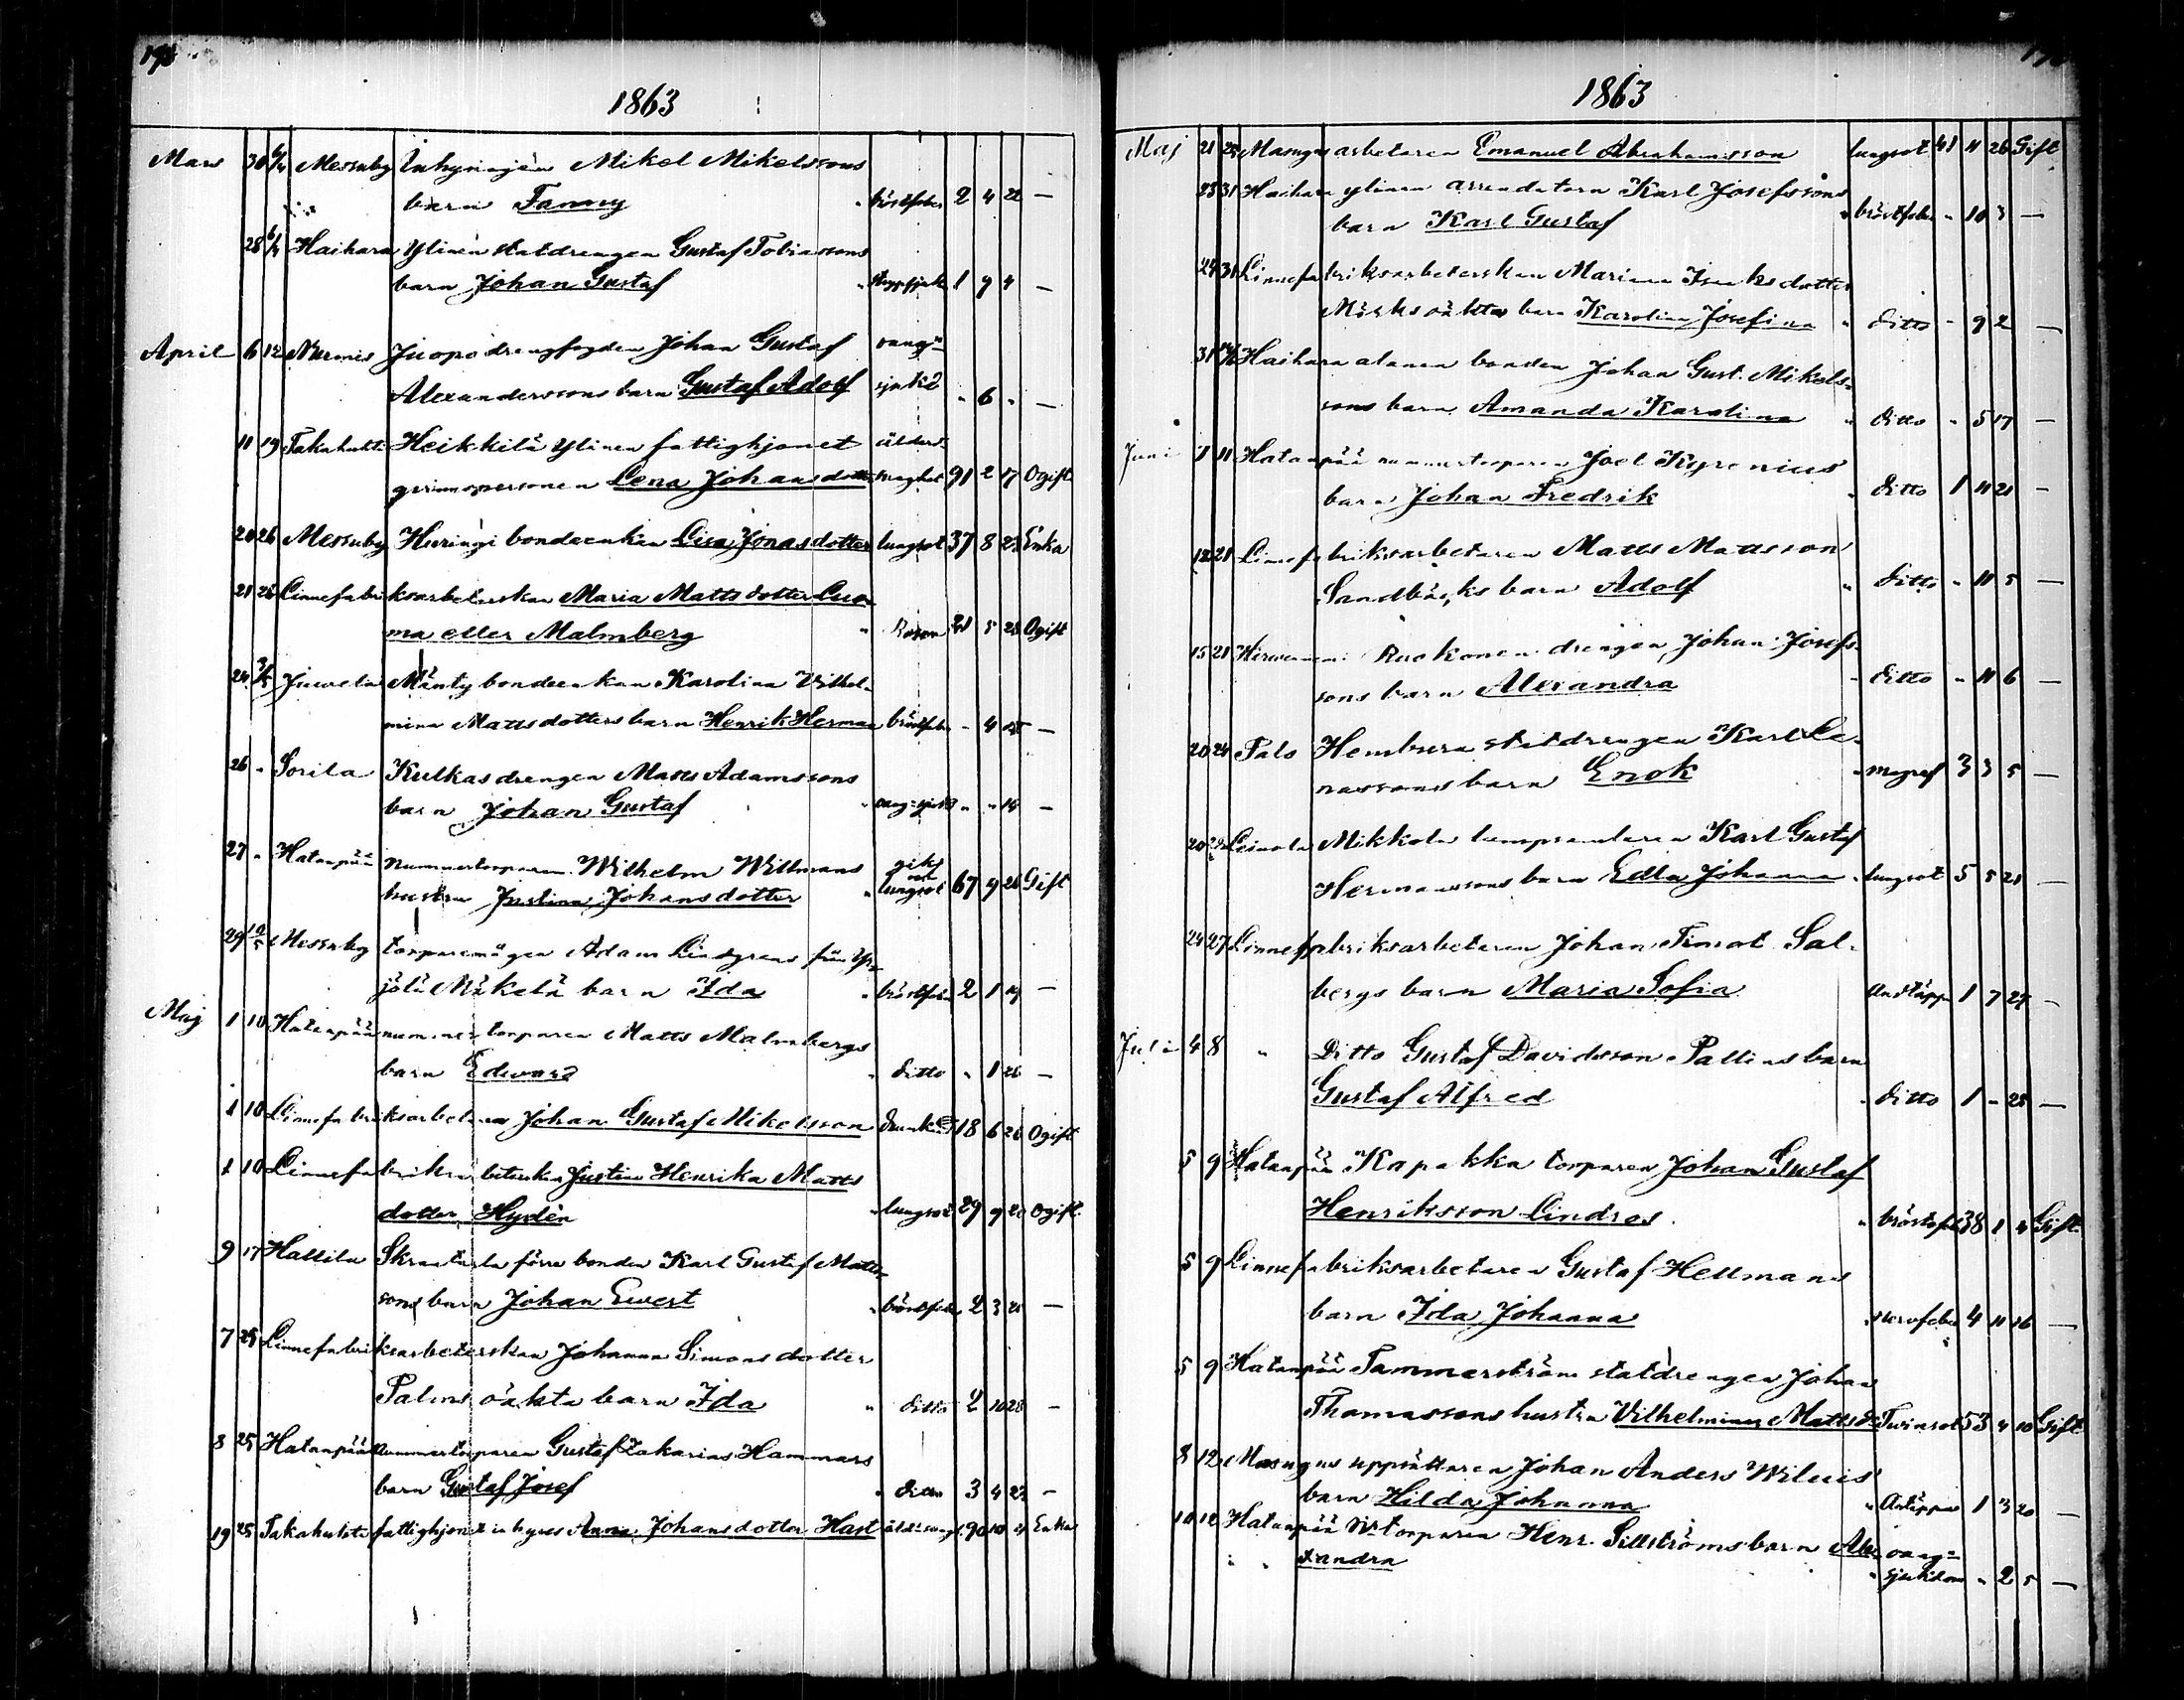 1863
Mars 30 6/4 Messuby Inhysingen Mikel Mikelssons
barn Fanny " bröstfeber 2 4 22 —
28 6/4 Haihara Ylinen statdrengen Gustaf Tobiassons
barn Johan Gustaf " 1 9 4 —
April 6 12 Nurmis Juopo drengfogden Johan Gustaf oang=
Alexanderssons barn Gustaf Adolf sjukd - 6 - —
11 19 Takahuhti Heikkilä Ylinen fattighjonet ålders-
qvinnspersonen Lena Johansdotter svaghet 91 2 17 Ogift
20 26 Messuby Heringi bondeenkan Lisa Jonasdotter lungsot 37 8 23 Enka
21 26 Linnefabriksarbeterskan Maria Mattsdotter Luo-
ma eller Malmberg " Rosen 21 5 28 Ogift
24 3/5 Juvela Mänty bondeenkan Karolina Vilhel-
mina Mattsdotters barn Henrik Herman bröstfeber - 4 —
26 - Sorila Kulkas drengen Matts Adamssons
barn Johan Gustaf " oang=sjukd " " 14 —
27 - Hatanpää Nummertorparen Wilhelm Willmans gikt
och
hustru Justina Johansdotter " lungsot 67 9 26 Gift
29 10/5 Messuby torparemågen Adam Lindgrens från Yli-
jölä Mäkelä barn Ida " bröstfeber 2 1 19 —
Maj 1 10 Hatanpää nummertorparen Matts Malmbergs
barn Edward " ditto " 1 26 —
1 10 Linnefabriksarbetaren Johan Gustaf Mikelsson drunkn 18 6 26 Ogift
1 10 Linnefabriksarbeterskan Justina Henrika Matts
dotter Hydén " lungsot 29 9 20 Ogift
9 17 Hallila Skraatarla förre bonden Karl Gustaf Matts-
sons barn Johan Ewert " bröstfeber 2 3 21 —
7 25 Linnefabriksarbeterskan Johanna Simonsdotter
Palms oäkta barn Ida " ditto 2 10 28 —
8 25 Hatanpää Nummertorparen Gustaf Zakarias Hammars
barn Gustaf Josef " ditto 3 4 23 —
19 25 Takahuhti fattighjonet inhyses Anna Johansdotter Hast ålds. svagh. 90 10 21 Enka
1863
Maj 21 25 Masugns arbetaren Emanuel Abrahamsson lungsot 41 11 26 Gift
23 31 Haihara ylinen arrendatorn Karl Josefssons
barn Karl Gustaf " bröstfeber - 10 3 —
24 31 Linnefabriksarbeterskan Mariana Isaksdotter
Mörks oäkta barn Karolina Josefina " ditto - 9 2 —
31 14/6 Haihara alanen bonden Johan Gust. Mikels-
sons barn Amanda Karolina " ditto - 5 17 —
Juni 7 11 Hatanpää nummertorparen Joel Kyrenius
barn Johan Fredrik " ditto 1 11 21 —
12 21 Linnefabriksarbetaren Matts Mattsson
Sandbäcks barn Adolf " ditto - 11 5 —
15 21 Hirviniemi Ruokonen drengen Johan Josefs-
sons barn Alexandra - ditto - 11 6 —
20 24 Palo Hembura statdrengen Karl Le-
nassons barn Enok " magref 3 3 5 —
20 Leinola Mikkola lumpsamlaren Karl Gustaf
Hermanssons barn Edla Johanna - lungsot 5 5 21 —
24 27 Linnefabriksarbetaren Johan Timot Sal-
bergs barn Maria Sofia Andtäppa 1 7 24 —
Juli 4 8 " Ditto Gustaf Davidsson Pallins barn
Gustaf Alfred " ditto 1 - 28 —
5 9 Hatanpää Kapakka torparen Johan Gustaf
Henriksson Lindros " bröstfeb 38 1 4 Gift
5 9 Linnefabriksarbetaren Gustaf Hellmans
barn Ida Johanna " nervfeber 4 11 16 —
5 9 Hatanpää Tammerström statdrengen Johan
Thomassons hustru Vilhelmina Mattsd. Tvinsot 53 4 10 Gift
8 12 Masugns uppsättaren Johan Anders Wileis
barn Hilda Johanna " Antäppa 1 3 20 —
10 12 Hatanpää Nr torparen Henr. Sillströms barn Alex- oang=
" " andra " sjukdom " 2 5 —